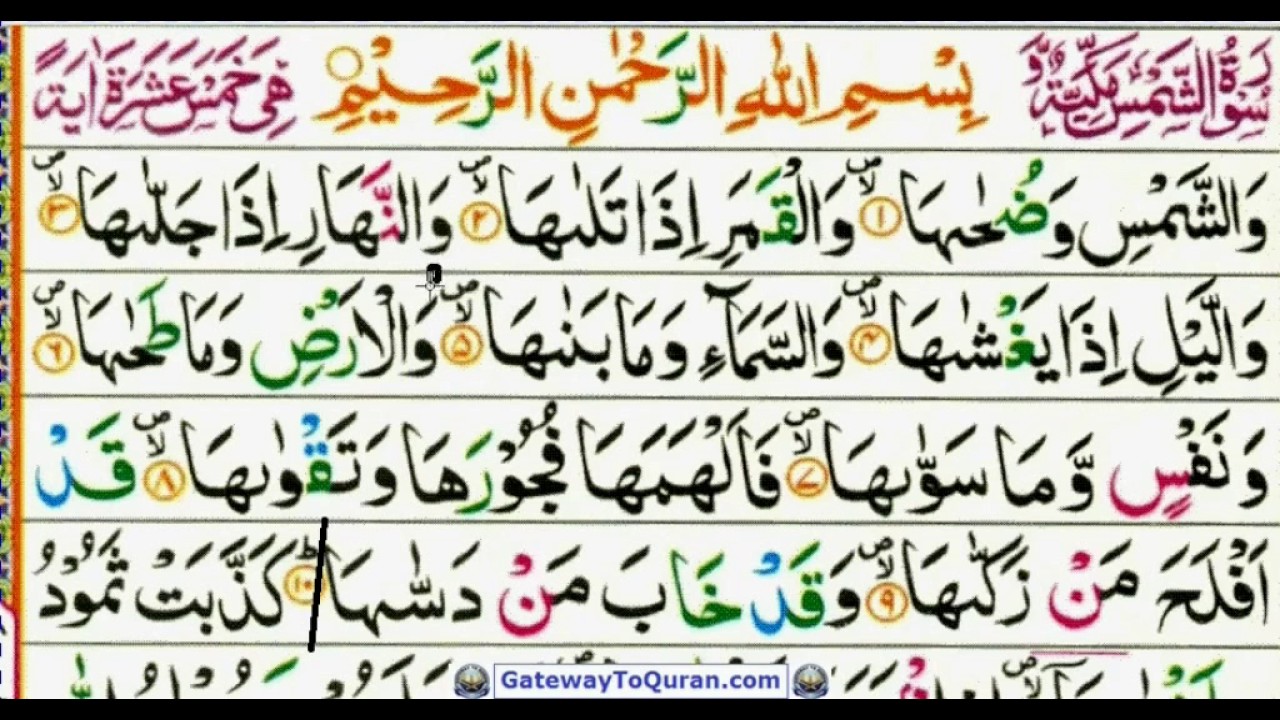 سُوْرَةُ الشَّمْسِ مَكِّيَّةٌ وَّ بِسْمِ اللّٰهِ الرَّحْمٰنِ الرَّحِيْمِ هِيَ خَمْسَ عَشَرَةَ اٰيَةً
وَالشَّمْسِ وَضُحٰىهَا ۪ۙ‏﴿۱﴾ وَالْقَمَرِ اِذَا تَلٰىهَا ۪ۙ‏﴿۲﴾ وَالنَّهَارِ اِذَا جَلّٰىهَا ۪ۙ‏﴿۳﴾
وَالَّيْلِ اِذَا يَغْشٰىهَا ۪ۙ‏﴿۴﴾ وَالسَّمَآءِ وَمَا بَنٰىهَا ۪ۙ‏﴿۵﴾ وَالْاَرْضِ وَمَا طَحٰىهَا ۪ۙ‏﴿۶﴾
وَنَفْسٍ وَّمَا سَوّٰىهَا ۪ۙ‏﴿۷﴾ فَاَلْهَمَهَا فُجُوْرَهَا وَتَقْوٰىهَا ۪ۙ‏﴿۸﴾ قَدْ
اَفْلَحَ مَنْ زَكّٰىهَا ۪ۙ‏﴿۹﴾ وَقَدْ خَابَ مَنْ دَسّٰىهَا ؕ‏﴿۱۰﴾ كَذَّبَتْ ثَمُوْدُ
GatewayToQuran.com